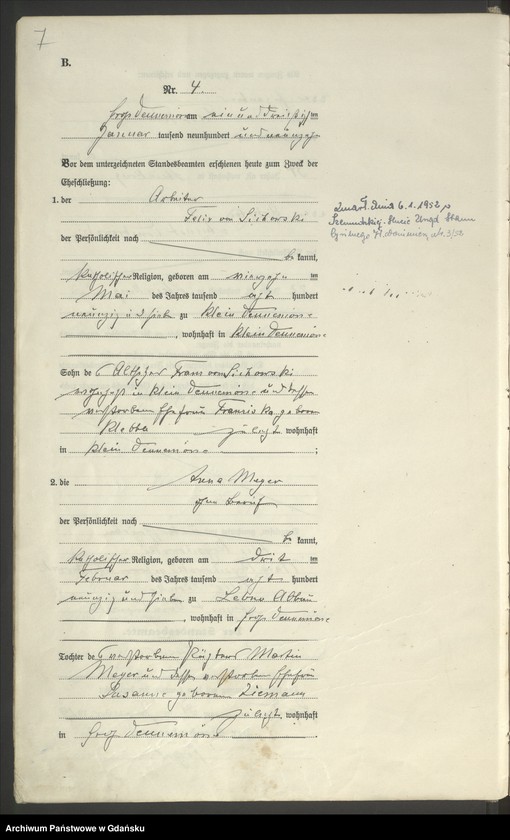 7
B.
Nr. 4.
Hoch Dennemörse am einunddreißigsten
Januar tausend neunhundert und neunzehn
Vor dem unterzeichneten Standesbeamten erschienen heute zum Zweck der
Eheschließung:
1. der Arbeiter
Felix von Sichowski
der Persönlichkeit nach
be kannt,
katholischer Religion, geboren am vierzehn ten
Mai des Jahres tausend acht hundert
neunzig und sieben zu Klein Dennemörse
, wohnhaft in Klein Dennemörse
Sohn des Altsitzer Franz von Sichowski
wohnhaft in Klein Dennemörse und dessen
verstorbenen Ehefrau geborene
Klebba zuletzt wohnhaft
in Klein Dennemörse ;
2. die Anna Meyer
ohne Beruf
der Persönlichkeit nach
be kannt,
katholischer Religion, geboren am dritten
Februar des Jahres tausend acht hundert
neunzig und sieben zu Lebno Abbau
, wohnhaft in Hoch Dennemörse
Tochter des verstorbenen Martin
Meyer und dessen verstorbenen Ehefrau
Susanne geborene Ziemann
zuletzt wohnhaft
in Hoch Dennemörse .
Zmarł dnia 6.1.1952 r
Urząd Stanu
Cywilnego 3/52
Archiwum Państwowe w Gdańsku